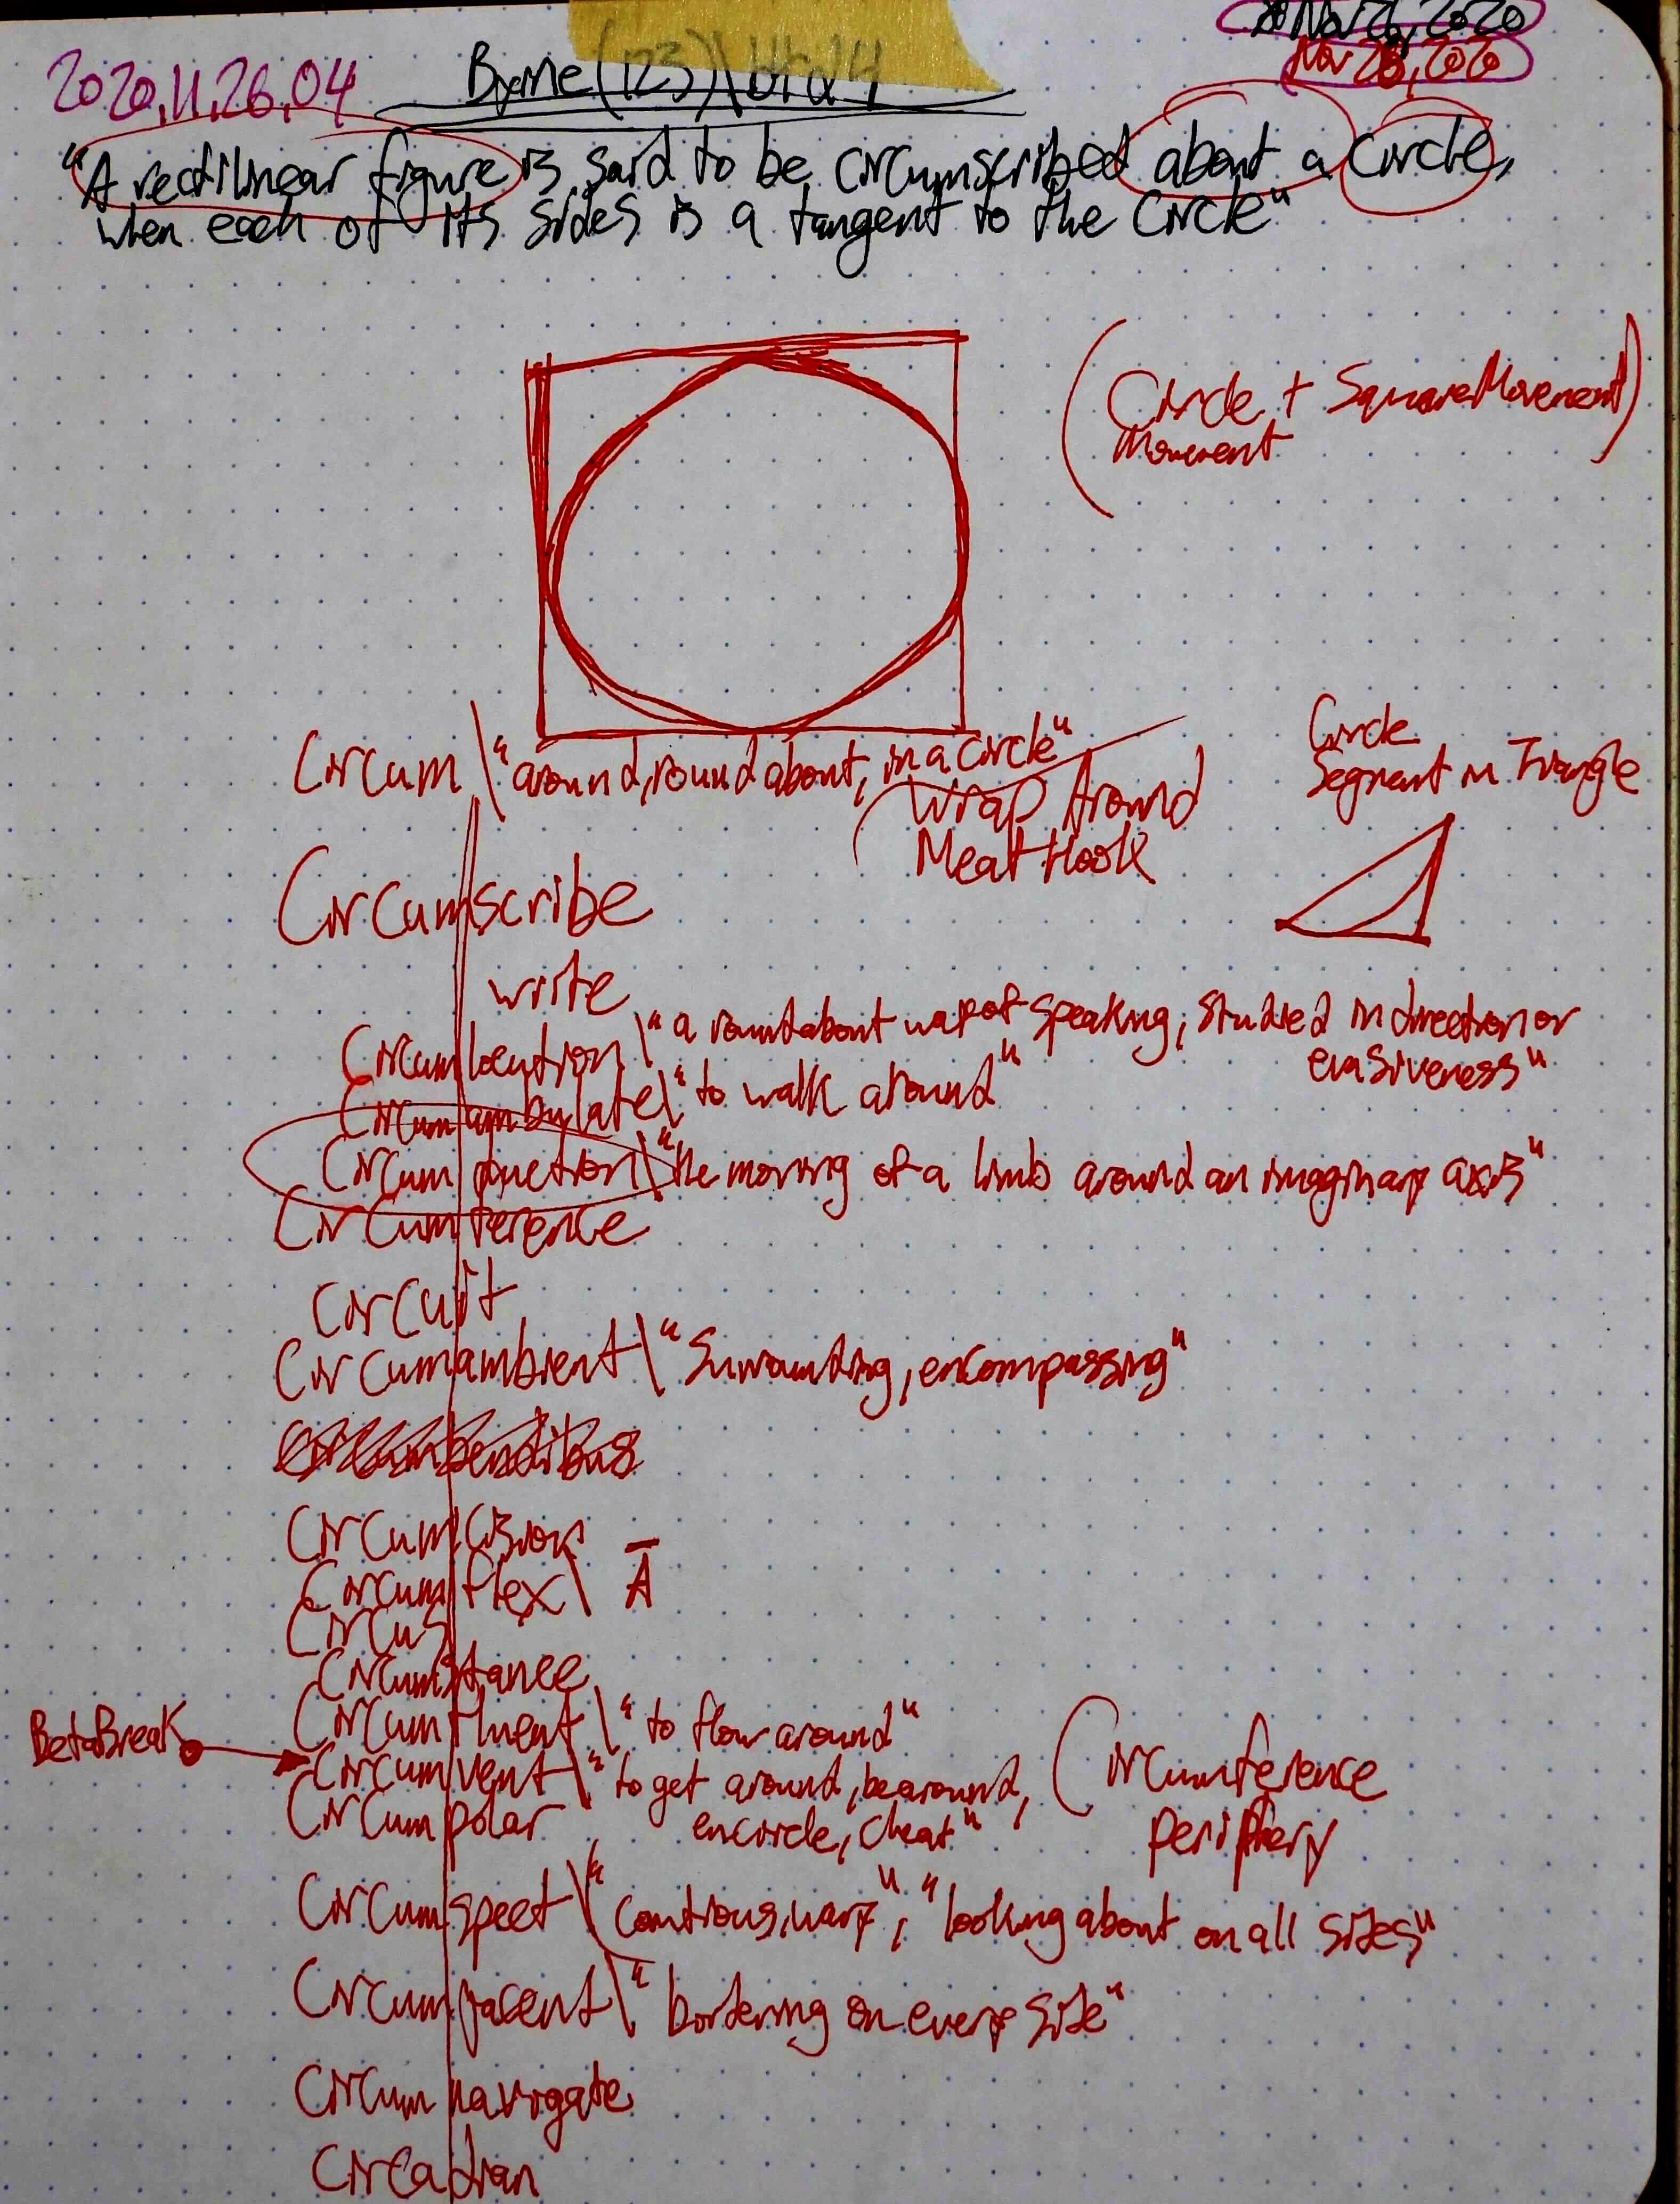 Nov 26, 2020
2020,11,26,04
Byrne (123) \
Nov 28, 2020
"A rectilinear figure is said to be circumscribed about a circle,
when each of its sides is a tangent to the circle"
(Circle + Square Movement)
Movement
Circum \ "around, round about, in a circle"
Wrap Around
Meat Hook
Circle
Segment in Triangle
Circumscribe
write
Circumlocution \ "a roundabout way of speaking; studied indirection or
evasiveness"
Circumambulate \ "to walk around"
Circumduction \ "the moving of a limb around an imaginary axis"
Circumference
Circuit
Circumambient \ "Surrounding, encompassing"
Circumbendibus
Circumcision
Circumflex \ Ā
Circus
Circumstance
Circumfluent \ "to flow around"
BetaBreak
Circumvent \ "to get around, be around,
encircle, cheat"
Circumference
periphery
Circumpolar
Circumspect \ "Cautious, wary", "looking about on all sides"
Circumjacent \ "bordering on every side"
Circumnavigate
Circadian